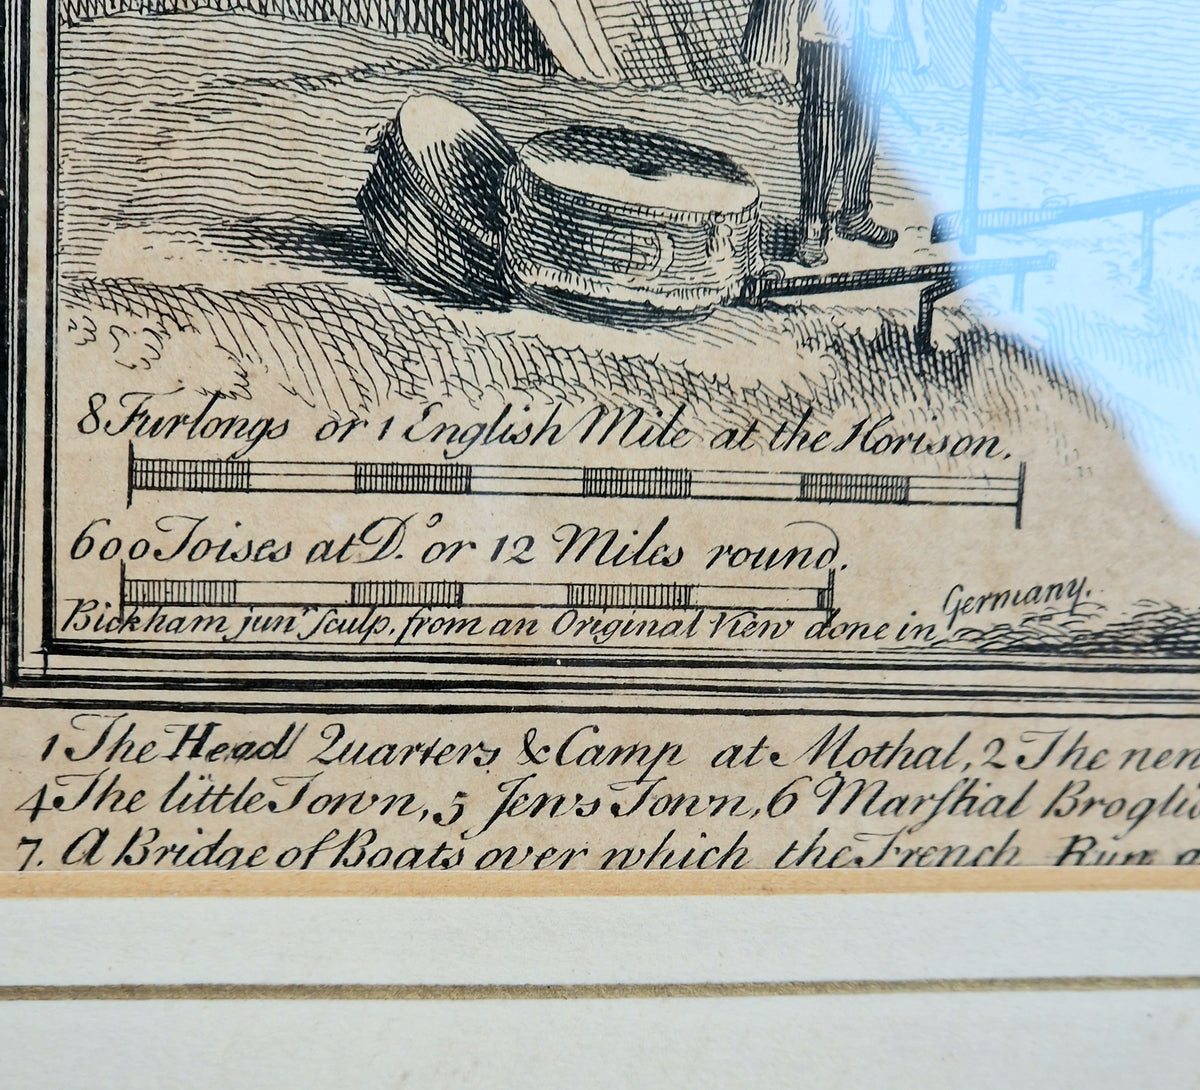 8 Furlongs or 1 English Mile at the Horison.
600 Toises at D.º or 12 Miles round.
Bickham junʳ Sculp. from an Original View done in Germany.
1 The Head Quarters & Camp at Mothal, 2 The nen
4 The little Town, 5 Jews Town, 6 Marſhal Broglio
7. A Bridge of Boats over which the French Run a